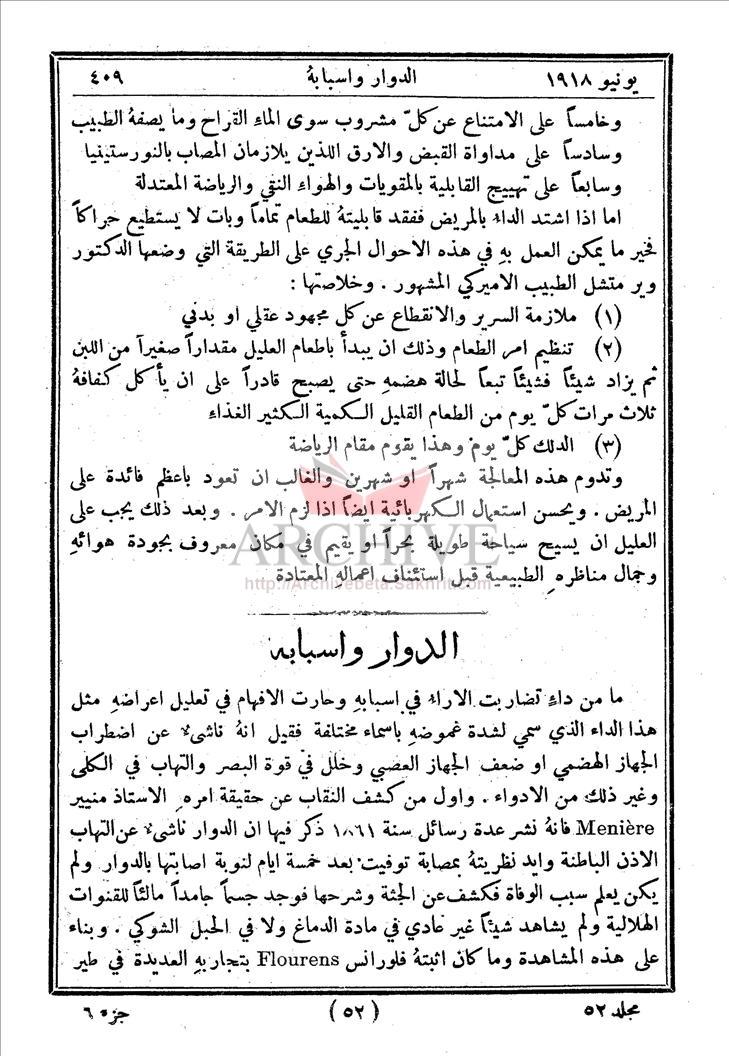 يونيو ١٩١٨ الدوار واسبابهُ ٤٠٩
وخامساً على الامتناع عن كلّ مشروب سوى الماء القراح وما يصفهُ الطبيب
وسادساً على مداواة القبض والارق اللذين يلازمان المصاب بالنورستينيا
وسابعاً على تهييج القابلية بالمقويات والهواء النقي والرياضة المعتدلة
اما اذا اشتد الداء بالمريض ففقد قابليتهُ للطعام تماماً وبات لا يستطيع حراكاً
فخير ما يمكن العمل بهِ في هذه الاحوال الجري على الطريقة التي وضعها الدكتور
وير متشل الطبيب الاميركي المشهور . وخلاصتها :
(١) ملازمة السرير والانقطاع عن كل مجهود عقلي او بدني
(٢) تنظيم امر الطعام وذلك ان يبدأ باطعام العليل مقداراً صغيراً من اللبن
ثم يزاد شيئاً فشيئاً تبعاً لحالة هضمهِ حتى يصبح قادراً على ان يأكل كفافهُ
ثلاث مرات كلّ يوم من الطعام القليل الكمية الكثير الغذاء
(٣) الدلك كلّ يوم وهذا يقوم مقام الرياضة
وتدوم هذه المعالجة شهراً او شهرين والغالب ان تعود باعظم فائدة على
المريض . ويحسن استعمال الكهربائية ايضاً اذا لزم الامر . وبعد ذلك يجب على
العليل ان يسيح سياحة طويلة بحراً او يقيم في مكان معروف بجودة هوائهِ
وجمال مناظره الطبيعية قبل استئناف اعمالهِ المعتادة
ARCHIVE
http://Archivebeta.Sakhrit.com
الدوار واسبابه
ما من داءٍ تضاربت الاراء في اسبابهِ وحارت الافهام في تعليل اعراضهِ مثل
هذا الداء الذي سمي لشدة غموضهِ باسماء مختلفة فقيل انهُ ناشىء عن اضطراب
الجهاز الهضمي او ضعف الجهاز العصبي وخلل في قوة البصر والتهاب في الكلى
وغير ذلك من الادواء . واول من كشف النقاب عن حقيقة امره الاستاذ منيير
Menière فانهُ نشر عدة رسائل سنة ١٨٦١ ذكر فيها ان الدوار ناشىء عن التهاب
الاذن الباطنة وايد نظريتهُ بمصابة توفيت بعد خمسة ايام لنوبة اصابتها بالدوار ولم
يكن يعلم سبب الوفاة فكشف عن الجثة وشرحها فوجد جسماً جامداً مالئاً للقنوات
الهلالية ولم يشاهد شيئاً غير عادي في مادة الدماغ ولا في الحبل الشوكي . وبناء
على هذه المشاهدة وما كان اثبتهُ فلورانس Flourens بتجاربهِ العديدة في طير
مجلد ٥٢ (٥٢) جزء ٦